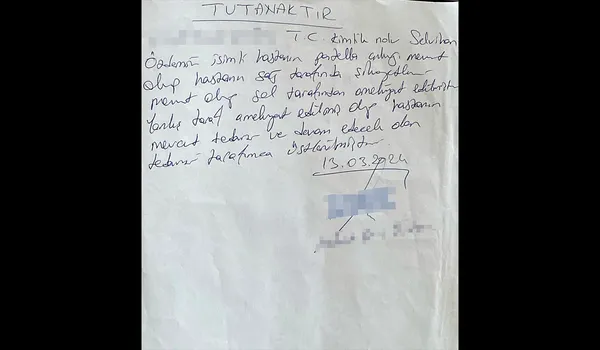 TUTANAKTIR
T.C. kimlik nolu Selvihan
Özdemir isimli hastanın patella çıkığı mevcut
olup hastanın sağ tarafında şikayetleri
mevcut olup sol tarafından ameliyat edilmiştir
Yanlış taraf ameliyat edilmiş olup hastanın
mevcut tedavi ve devam edecek olan
tedavi tarafımca üstlenilmiştir
13.03.2024